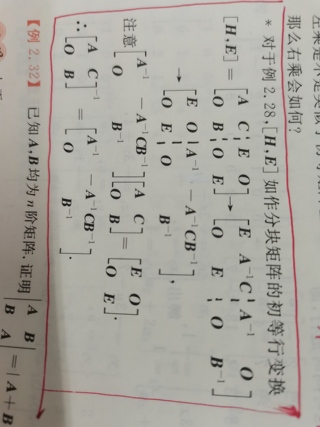 那么右乘会如何?
* 对于例 2.28,[H,E]如作分块矩阵的初等行变换
[H,E] = [A C ¦ E O
O B ¦ O E] → [E A⁻¹C ¦ A⁻¹ O
O E ¦ O B⁻¹]
→ [E O ¦ A⁻¹ −A⁻¹CB⁻¹
O E ¦ O B⁻¹],
注意 [A⁻¹ −A⁻¹CB⁻¹
O B⁻¹][A C
O B] = [E O
O E].
∴ [A C
O B]⁻¹ = [A⁻¹ −A⁻¹CB⁻¹
O B⁻¹].
【例 2.32】 已知 A,B 均为 n 阶矩阵,证明 |A B
B A| = |A+B